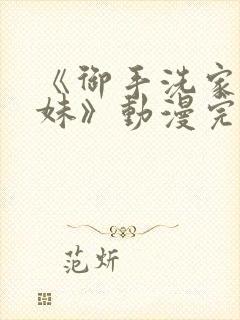 《御手洗家
妹》動漫完
范炘